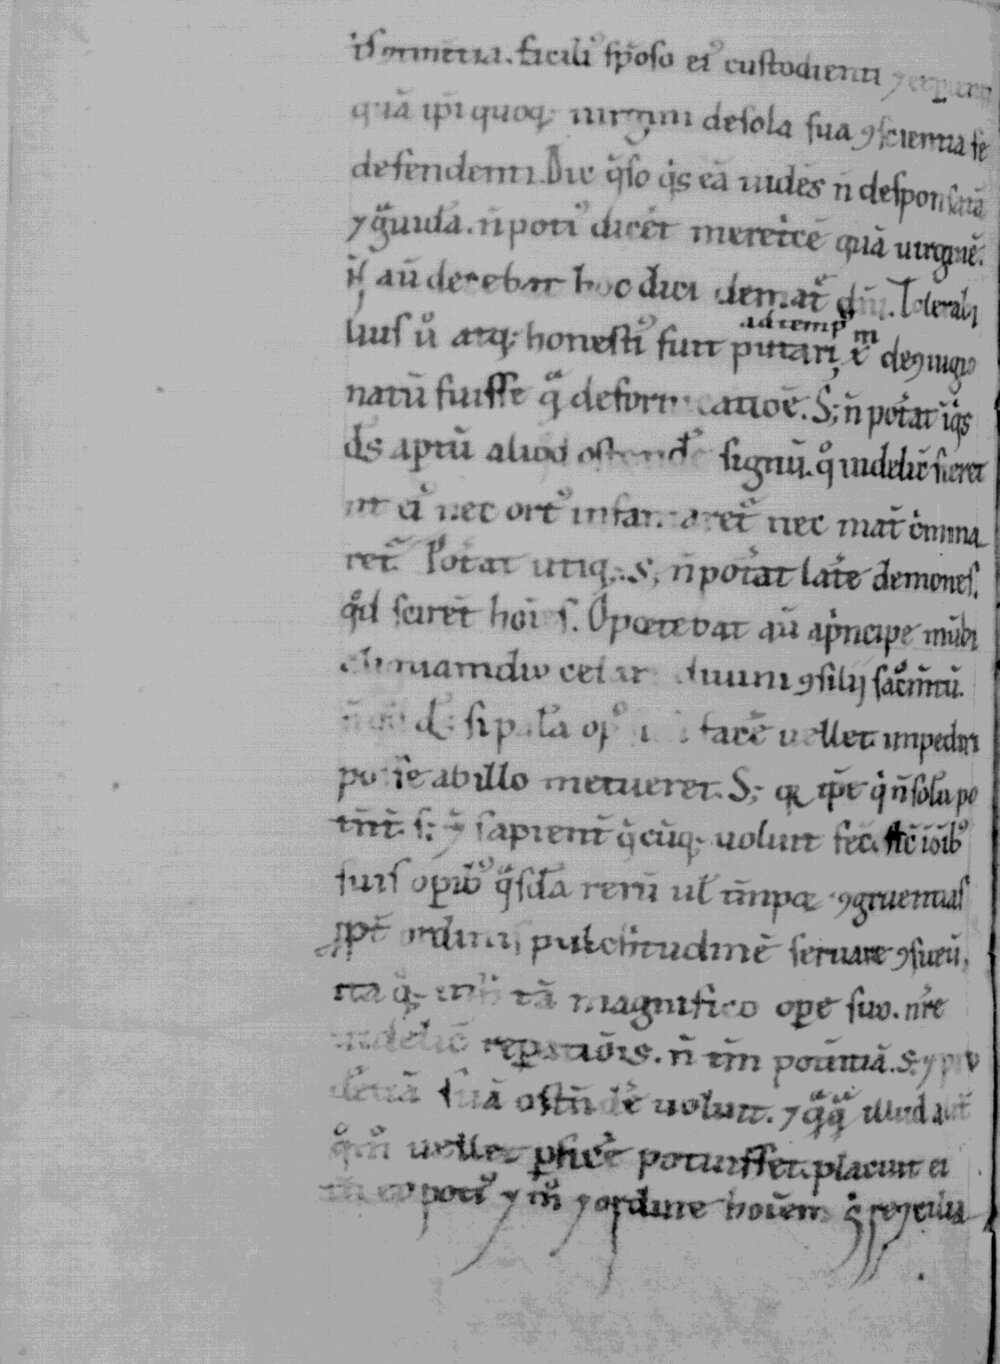 facili᾽ sp̄oso ei᾽ custodienti ⁊ expienti
quā ip̄i quoq; uirgini desola sua ꝯscientia se
defendenti. Dic q̄so qͥs eā uidēs n̄ desponsatā
⁊ gͣuidā. n̄ poti᾽ dicet̄ meretͥcē quā uirginē.
N̄ aū decebat hoc dici demat̄ dn̄i. Tolerabi
lius ů atq; honesti᾽ fuit putari ad temp᾽ xm̄ deꝯiugio
natū fuisse qͣ̄ defornicatiōe. S; n̄ pot̄at īqͥs
ds̄ aptū aliqod ostend̄e signū. qͦ uidelic̄ fieret
ut ei᾽ nec ort᾽ infamaret̄ nec mat̄ cͥmina
ret̄. Pot̄at utiq;. S; n̄ pot̄at lat̄e demones.
qͦd sciret̄ hoīes. Oportebat aū apͥncipe mūdi
aliquamdiu celari diuini ꝯsilij sacͣm̄tū.
n̄ qd ds̄ si palā op᾽ facē uellet. impediri
posse abillo metueret. S; qꝛ ip̄e qͥ n̄ solū po
tn̄t. s; ⁊ sapient̄ q̄cūq; uoluit fec̄. sic̄ ī oīb᾽
suis opib᾽ qͣsdā rerū ul̄ tn̄poꝝ ꝯgruentias
ꝓpt̄ ordinis pulchritudinē seruare ꝯsueū.
ita qͦ; in h tā magnifico ope suo. nr̄e
uidelic̄ repatiōis. n̄ tm̄ potn̄tiā. s; ⁊ pru
dētiā suā ostn̄de uoluit. ⁊ qͣqͣ̄ illud alit̄
qͦm̊ uellet pfic̄e potuisset. placuit ei
tn̄ eo poti᾽ ⁊ m̊ ⁊ ordine hoīem sͥ reꝯcilia